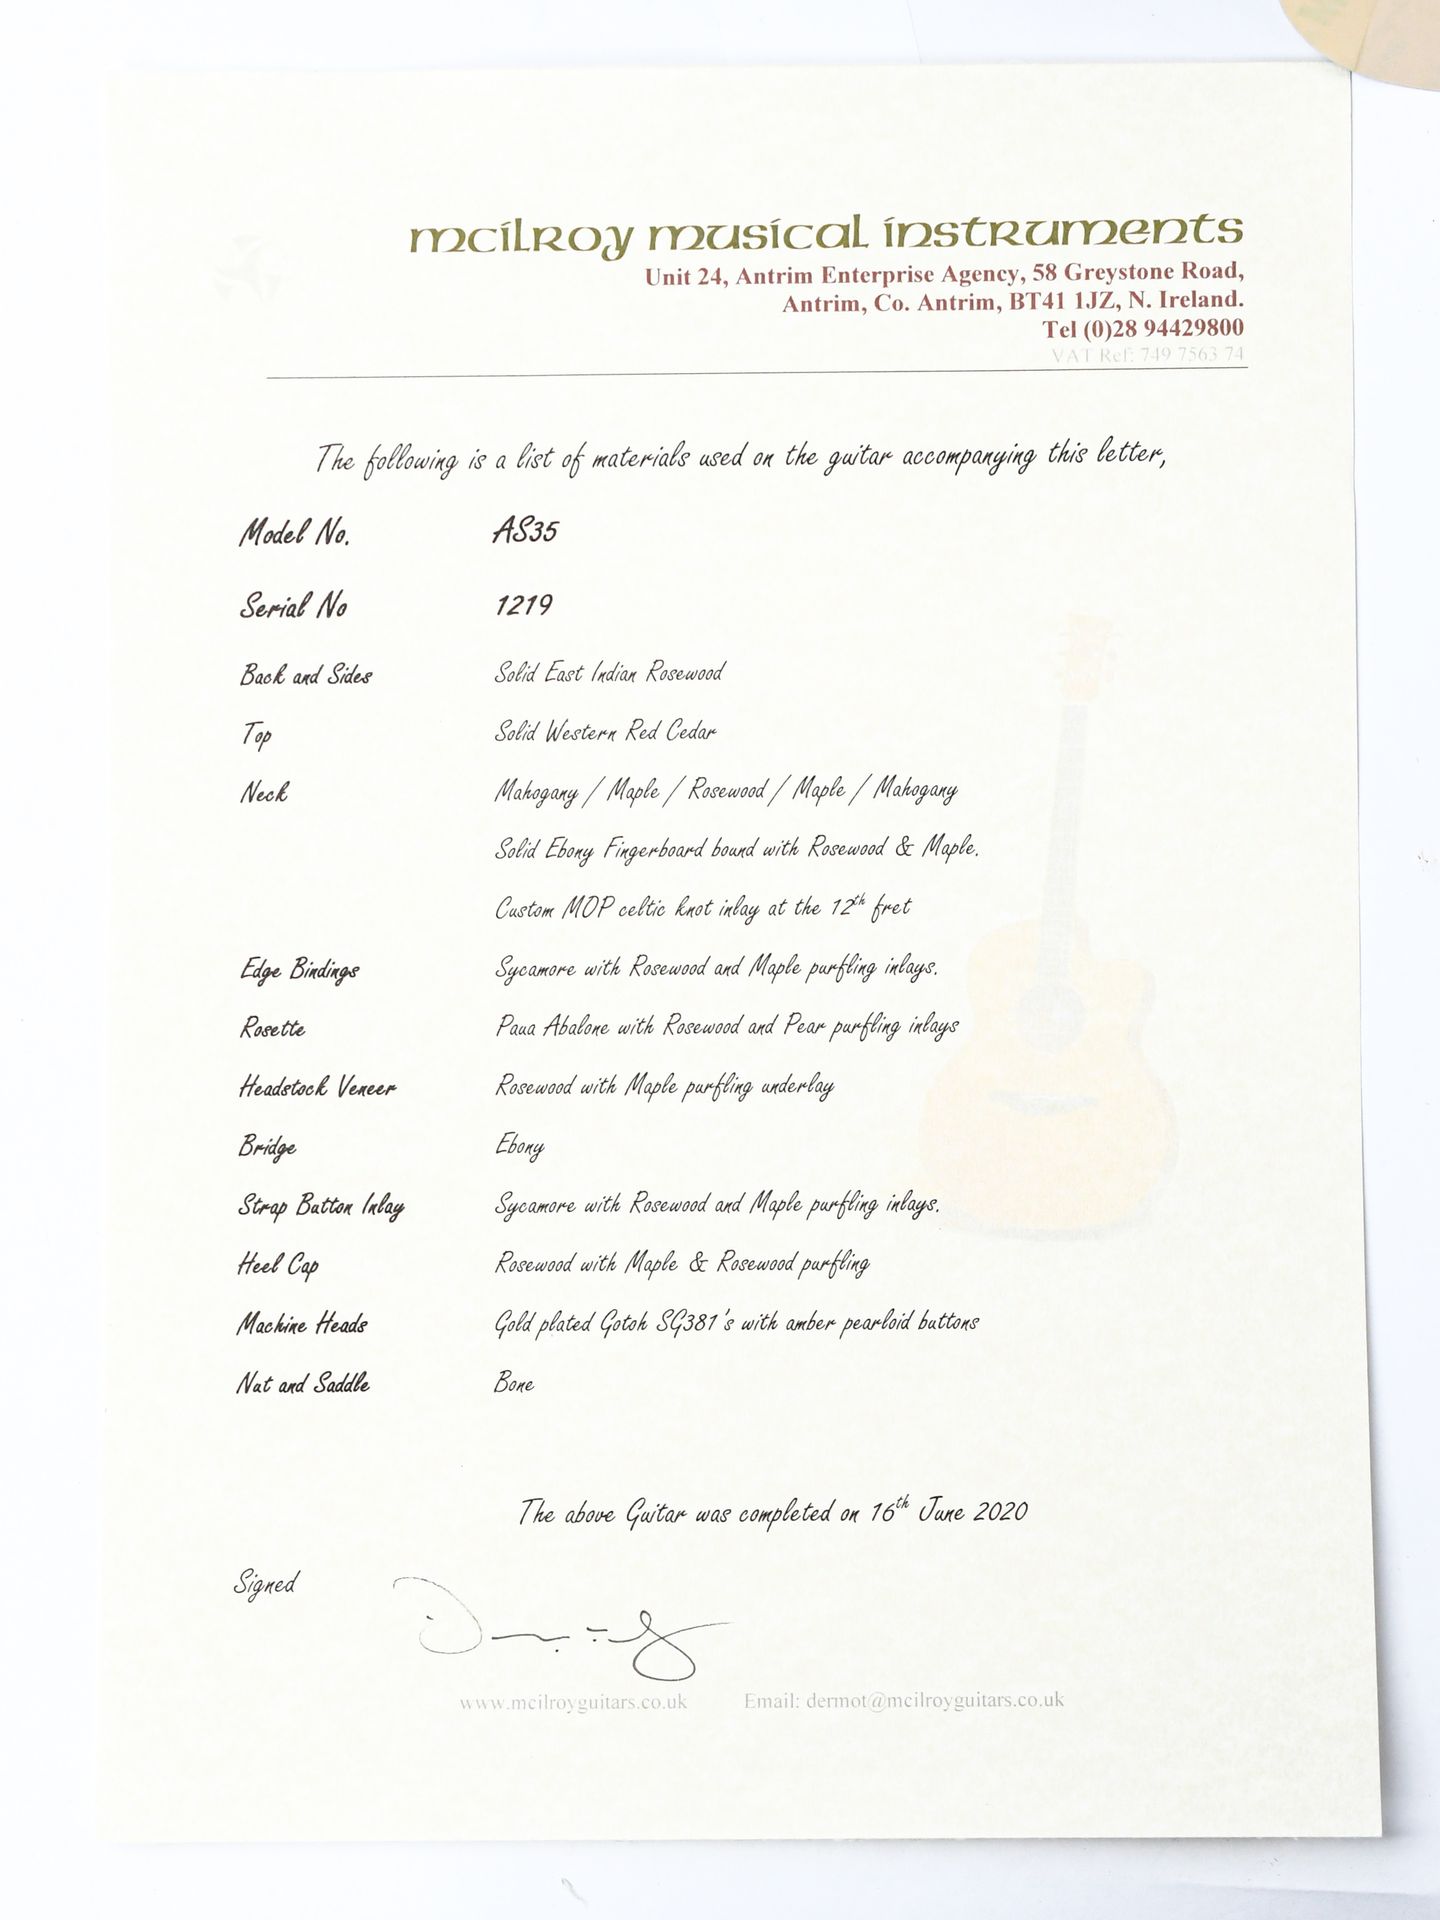 mcilroy musical instruments
Unit 24, Antrim Enterprise Agency, 58 Greystone Road,
Antrim, Co. Antrim, BT41 1JZ, N. Ireland.
Tel (0)28 94429800
VAT Ref: 749 7563 74
The following is a list of materials used on the guitar accompanying this letter,
Model No. AS35
Serial No 1219
Back and Sides Solid East Indian Rosewood
Top Solid Western Red Cedar
Neck Mahogany / Maple / Rosewood / Maple / Mahogany
Solid Ebony Fingerboard bound with Rosewood & Maple.
Custom MOP celtic knot inlay at the 12th fret
Edge Bindings Sycamore with Rosewood and Maple purfling inlays.
Rosette Paua Abalone with Rosewood and Pear purfling inlays
Headstock Veneer Rosewood with Maple purfling underlay
Bridge Ebony
Strap Button Inlay Sycamore with Rosewood and Maple purfling inlays.
Heel Cap Rosewood with Maple & Rosewood purfling
Machine Heads Gold plated Gotoh SG381's with amber pearloid buttons
Nut and Saddle Bone
The above Guitar was completed on 16th June 2020
Signed
www.mcilroyguitars.co.uk Email: dermot@mcilroyguitars.co.uk